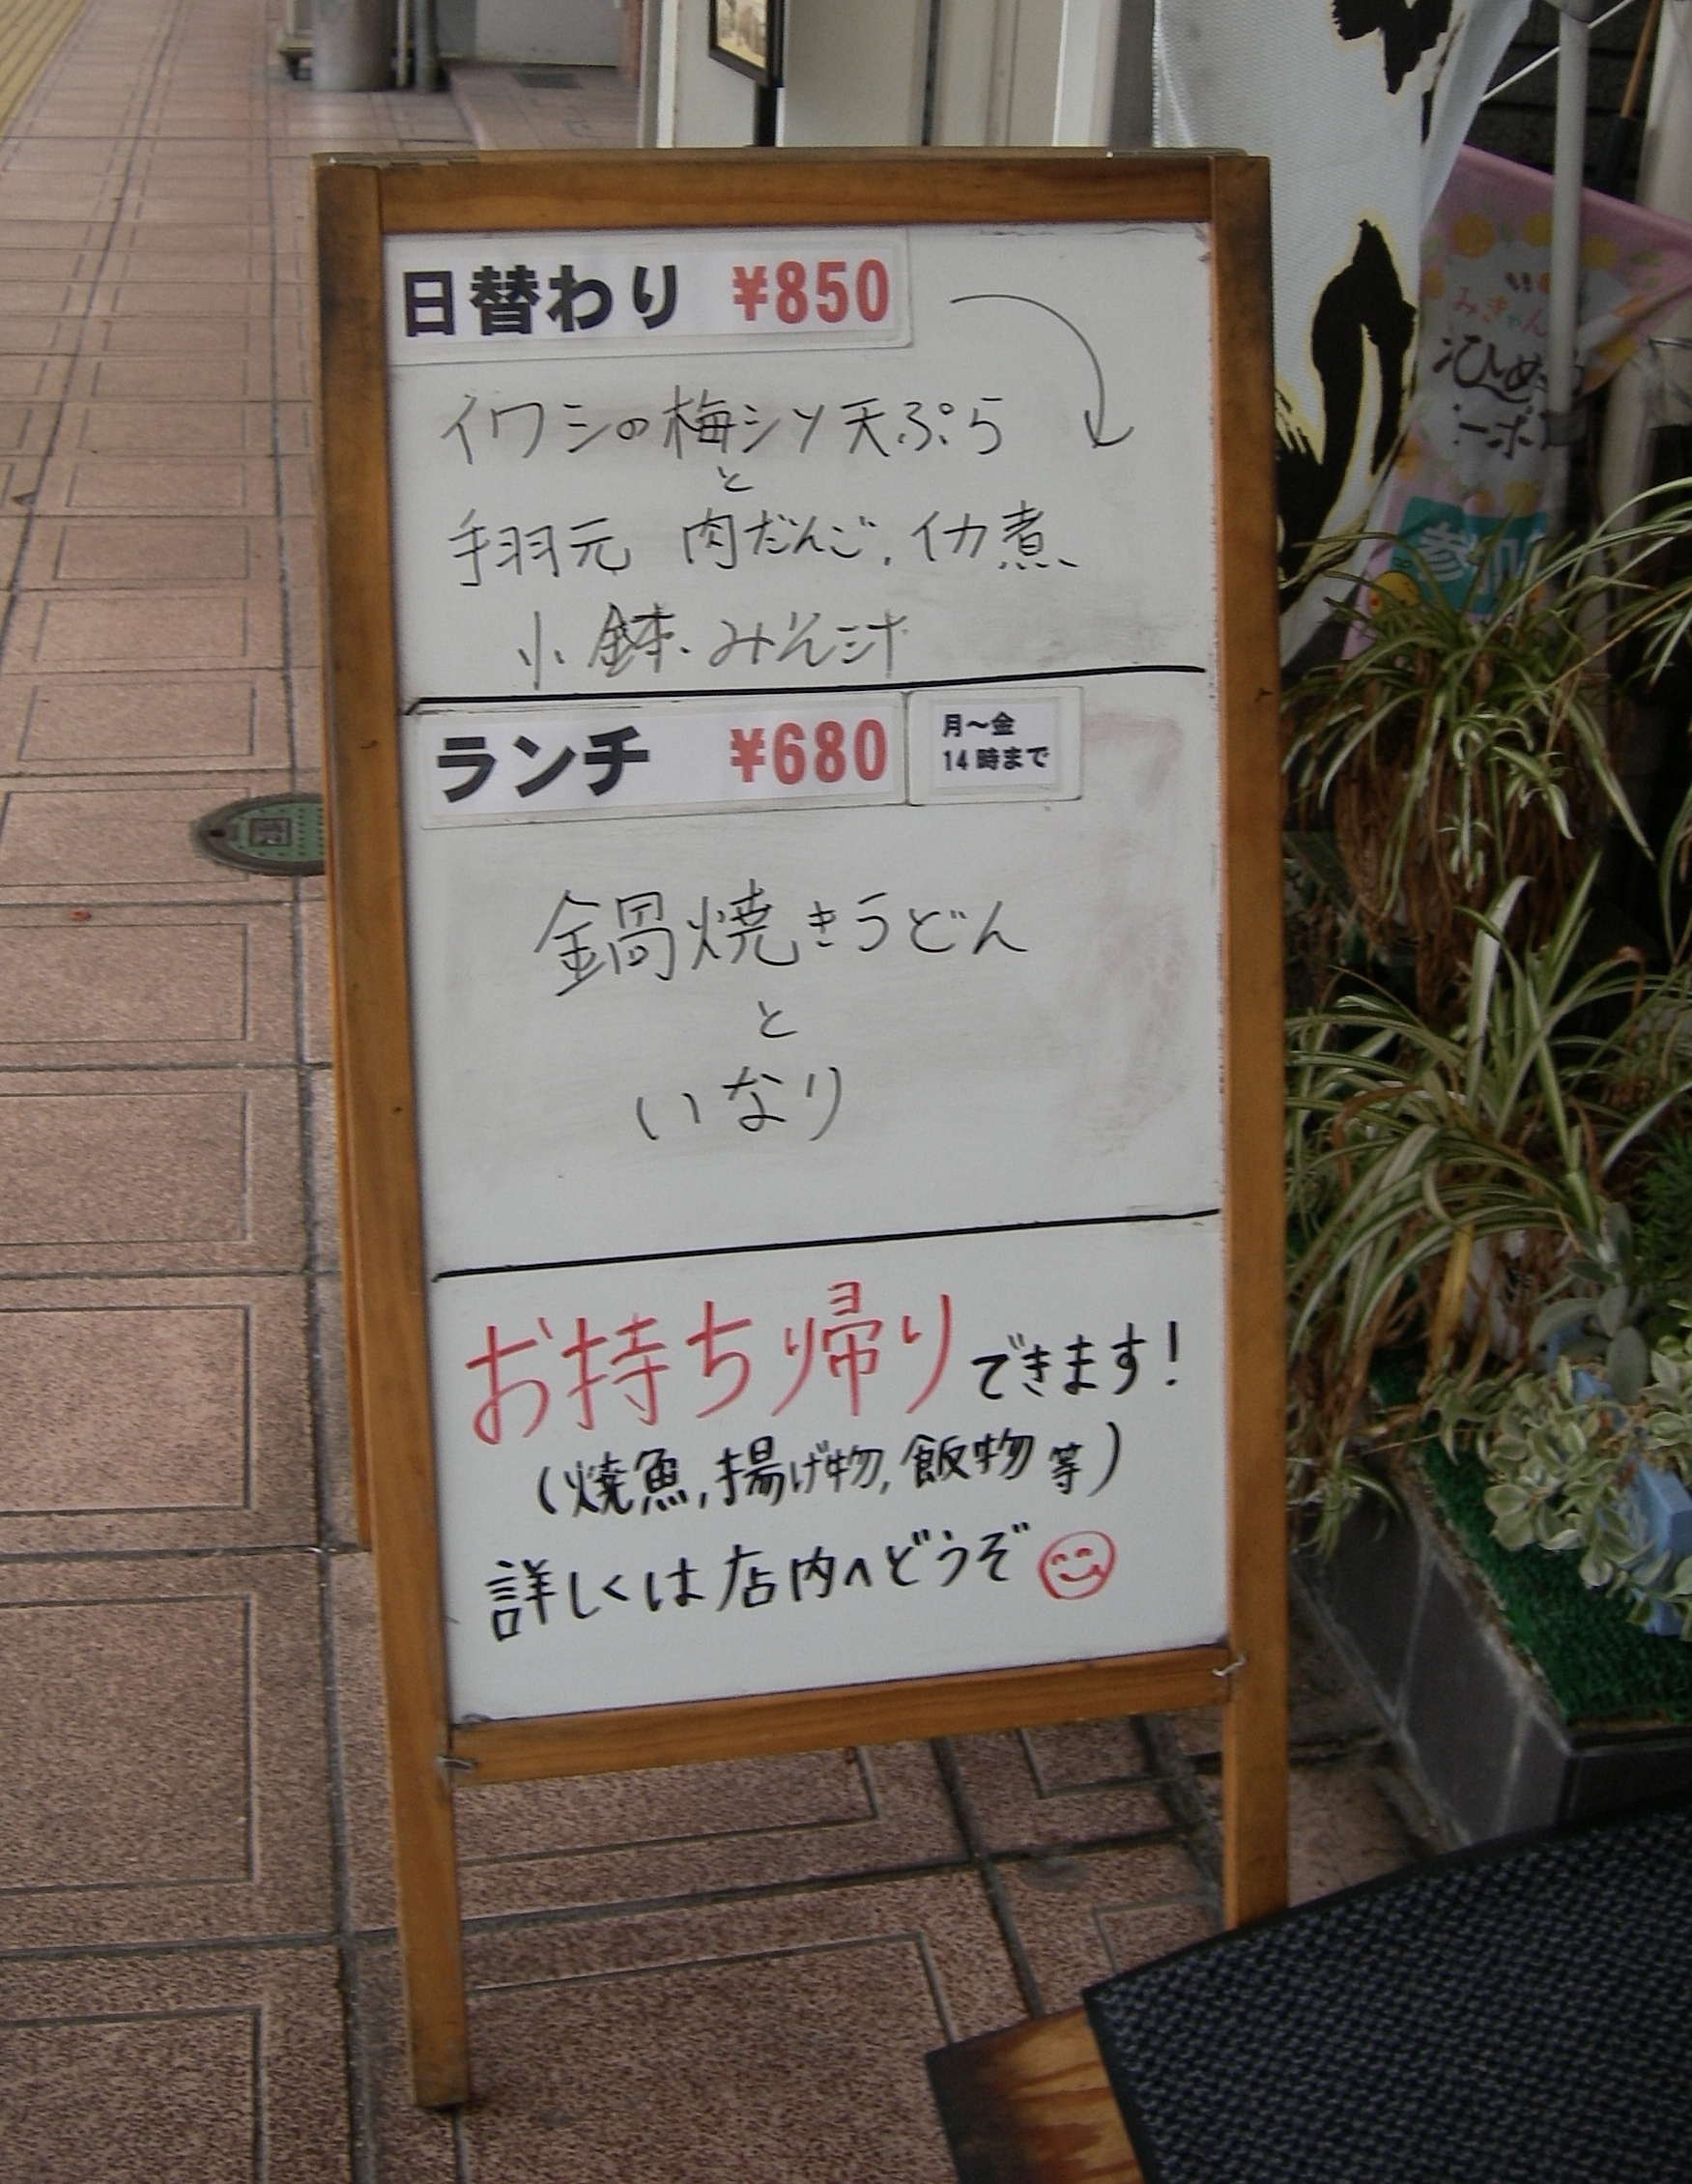 日替わり ¥850
イワシの梅シソ天ぷら
と
手羽元 肉だんご,イカ煮、
小鉢、みそ汁
ランチ ¥680
月～金
14時まで
鍋焼きうどん
と
いなり
お持ち帰りできます!
(焼魚,揚げ物,飯物 等)
詳しくは店内へどうぞ
みきゃん
参加